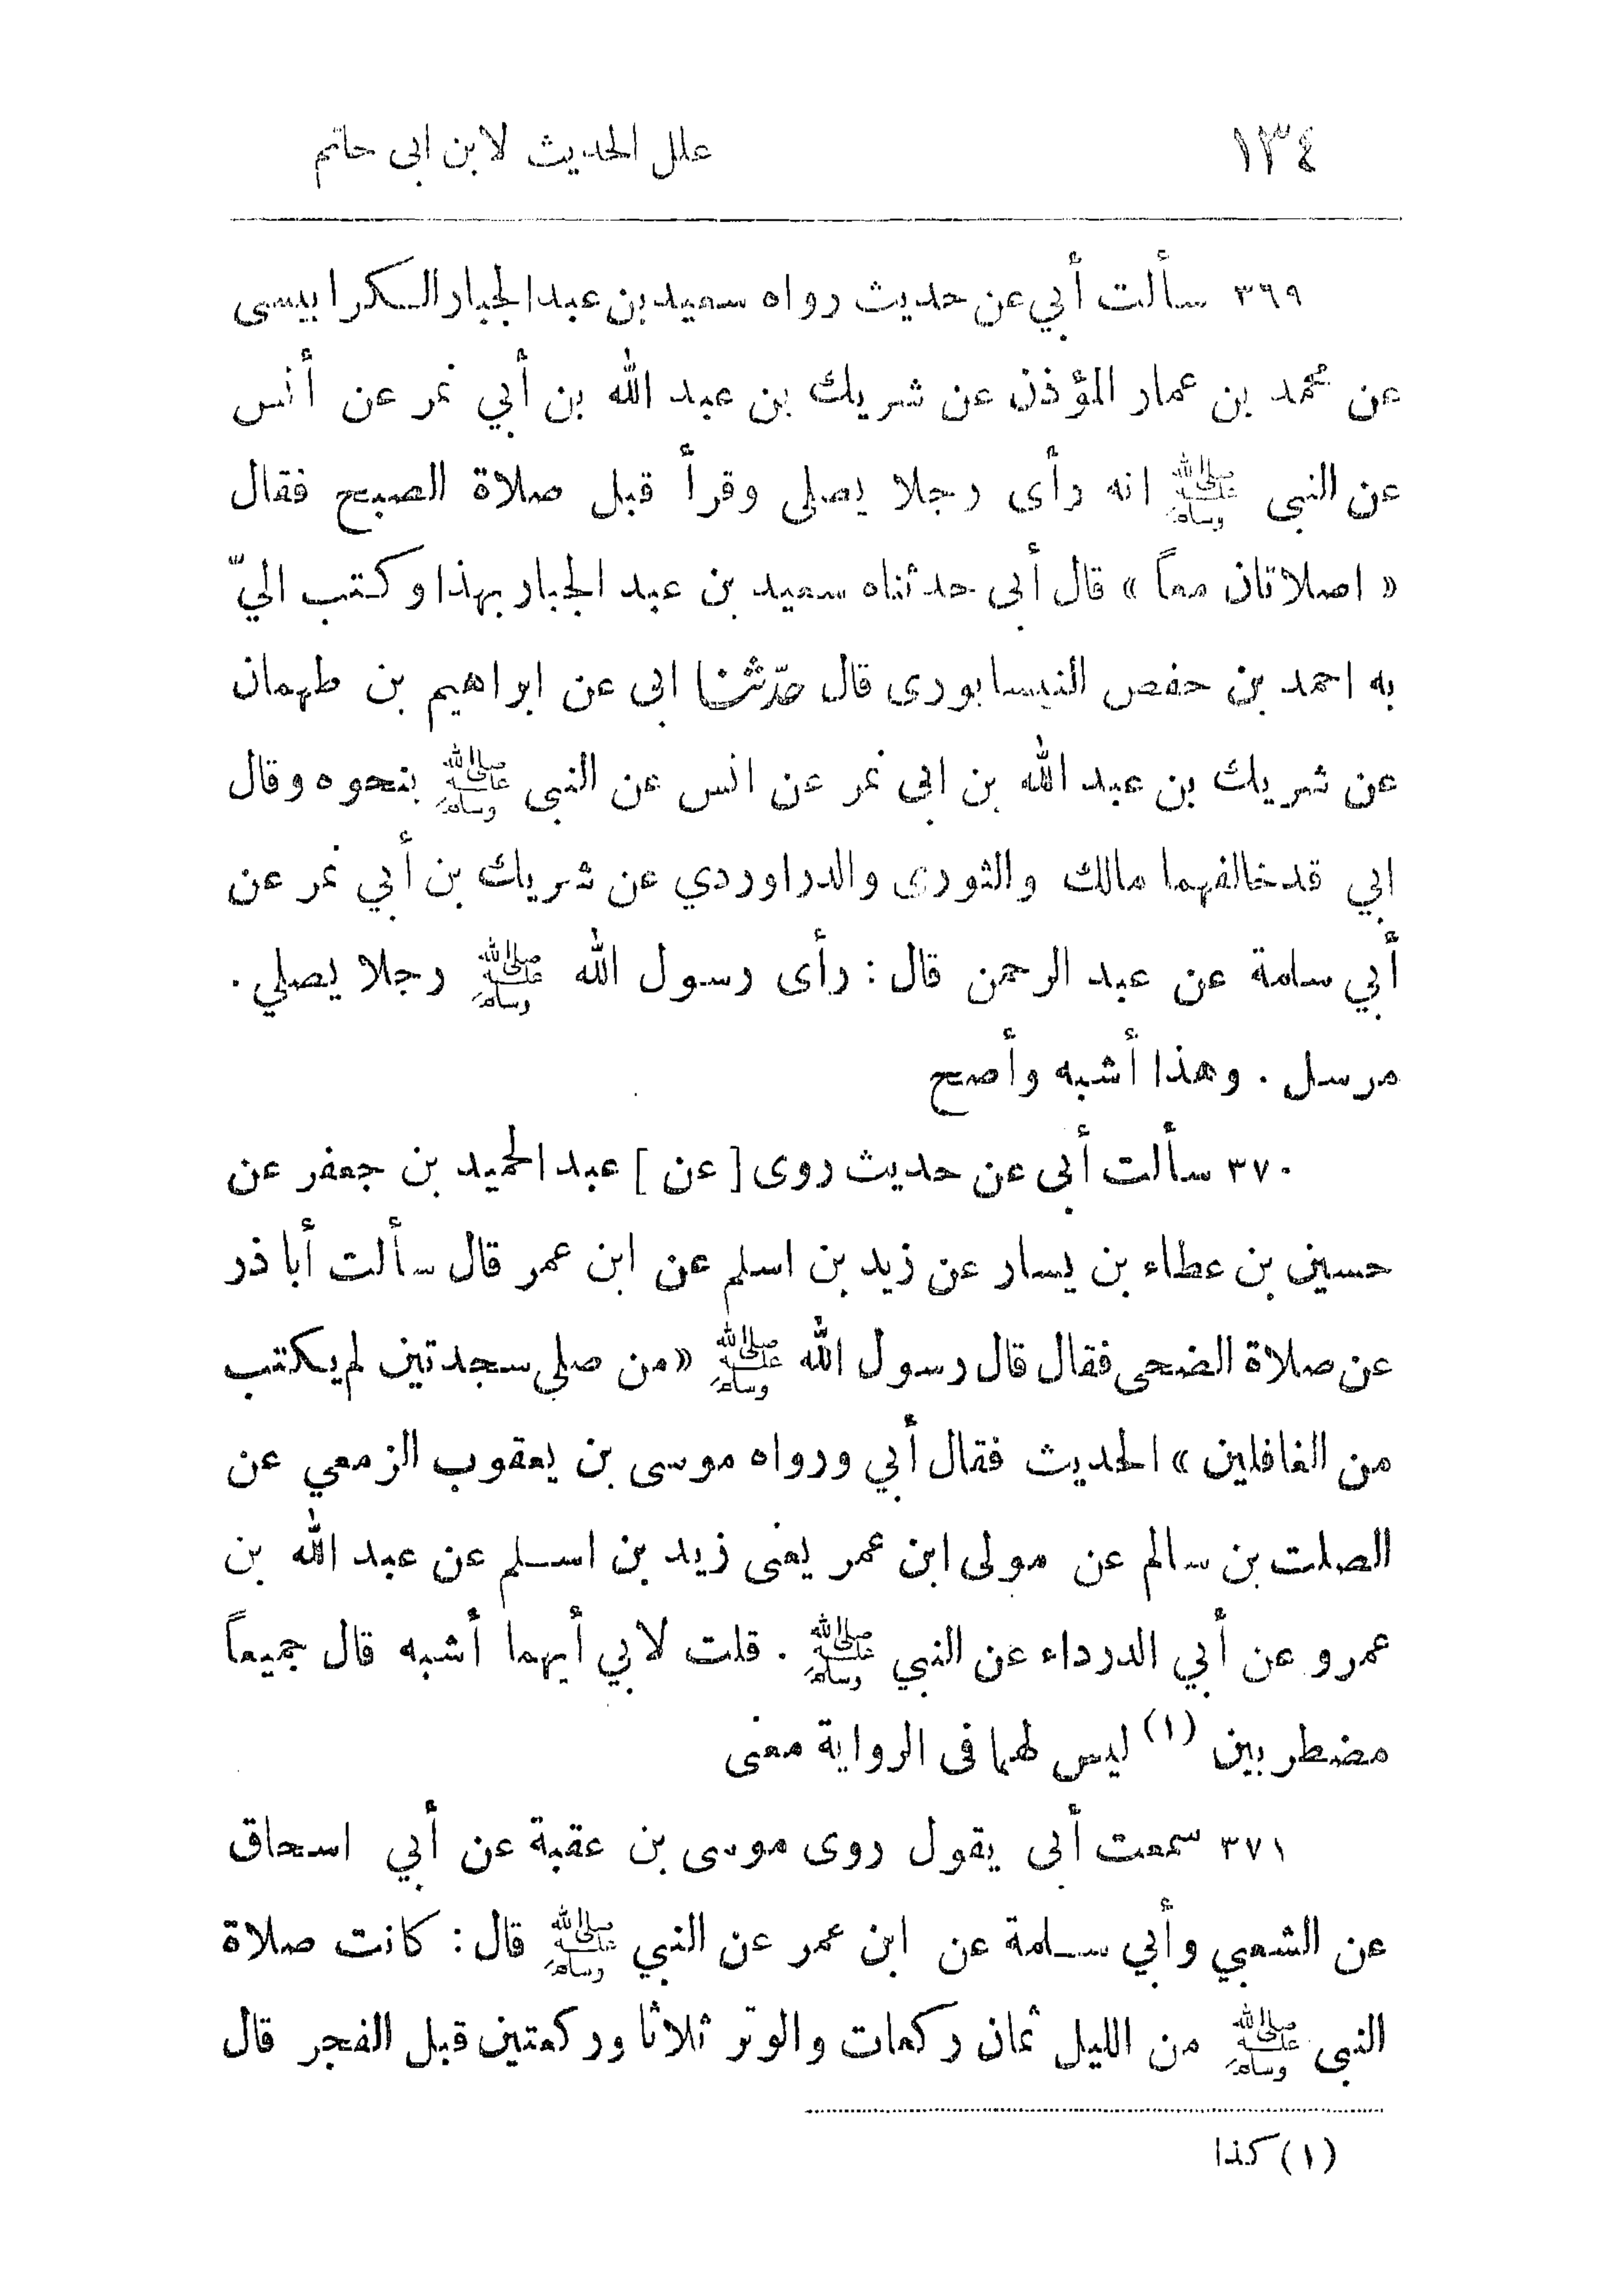 ١٣٤ علل الحديث لابن ابى حاتم
٣٦٩ سألت أبي عن حديث رواه سعيد بن عبد الجبار الكرابيسى
عن محمد بن عمار المؤذن عن شريك بن عبد الله بن أبي نمر عن أنس
عن النبى ﷺ انه رأى رجلا يصلى وقرأ قبل صلاة الصبح فقال
« اصلاتان معاً » قال أبى حدثناه سعيد بن عبد الجبار بهذا وكتب اليّ
به احمد بن حفص النيسابورى قال حدّثنا ابى عن ابراهيم بن طهمان
عن شريك بن عبد الله بن ابى نمر عن انس عن النبى ﷺ بنحوه وقال
ابي قد خالفهما مالك والثورى والدراوردي عن شريك بن أبي نمر عن
أبي سلمة عن عبد الرحمن قال : رأى رسول الله ﷺ رجلا يصلي .
مرسل . وهذا أشبه وأصح
٣٧٠ سألت أبى عن حديث روى [ عن ] عبد الحميد بن جعفر عن
حسين بن عطاء بن يسار عن زيد بن اسلم عن ابن عمر قال سألت أبا ذر
عن صلاة الضحى فقال قال رسول الله ﷺ « من صلي سجدتين لم يكتب
من الغافلين » الحديث فقال أبي ورواه موسى بن يعقوب الزمعي عن
الصلت بن سالم عن مولى ابن عمر يعنى زيد بن اسلم عن عبد الله بن
عمرو عن أبي الدرداء عن النبي ﷺ . قلت لابي أيهما أشبه قال جميعاً
مضطربين (١) ليس لهما فى الرواية معنى
٣٧١ سمعت أبى يقول روى موسى بن عقبة عن أبي اسحاق
عن الشعبي وأبي سلمة عن ابن عمر عن النبي ﷺ قال : كانت صلاة
النبى ﷺ من الليل ثمان ركعات والوتر ثلاثا وركعتين قبل الفجر قال
(١) كذا